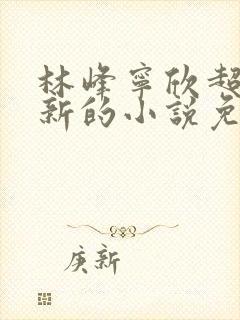 林峰寧欣超
新的小說免
庚新